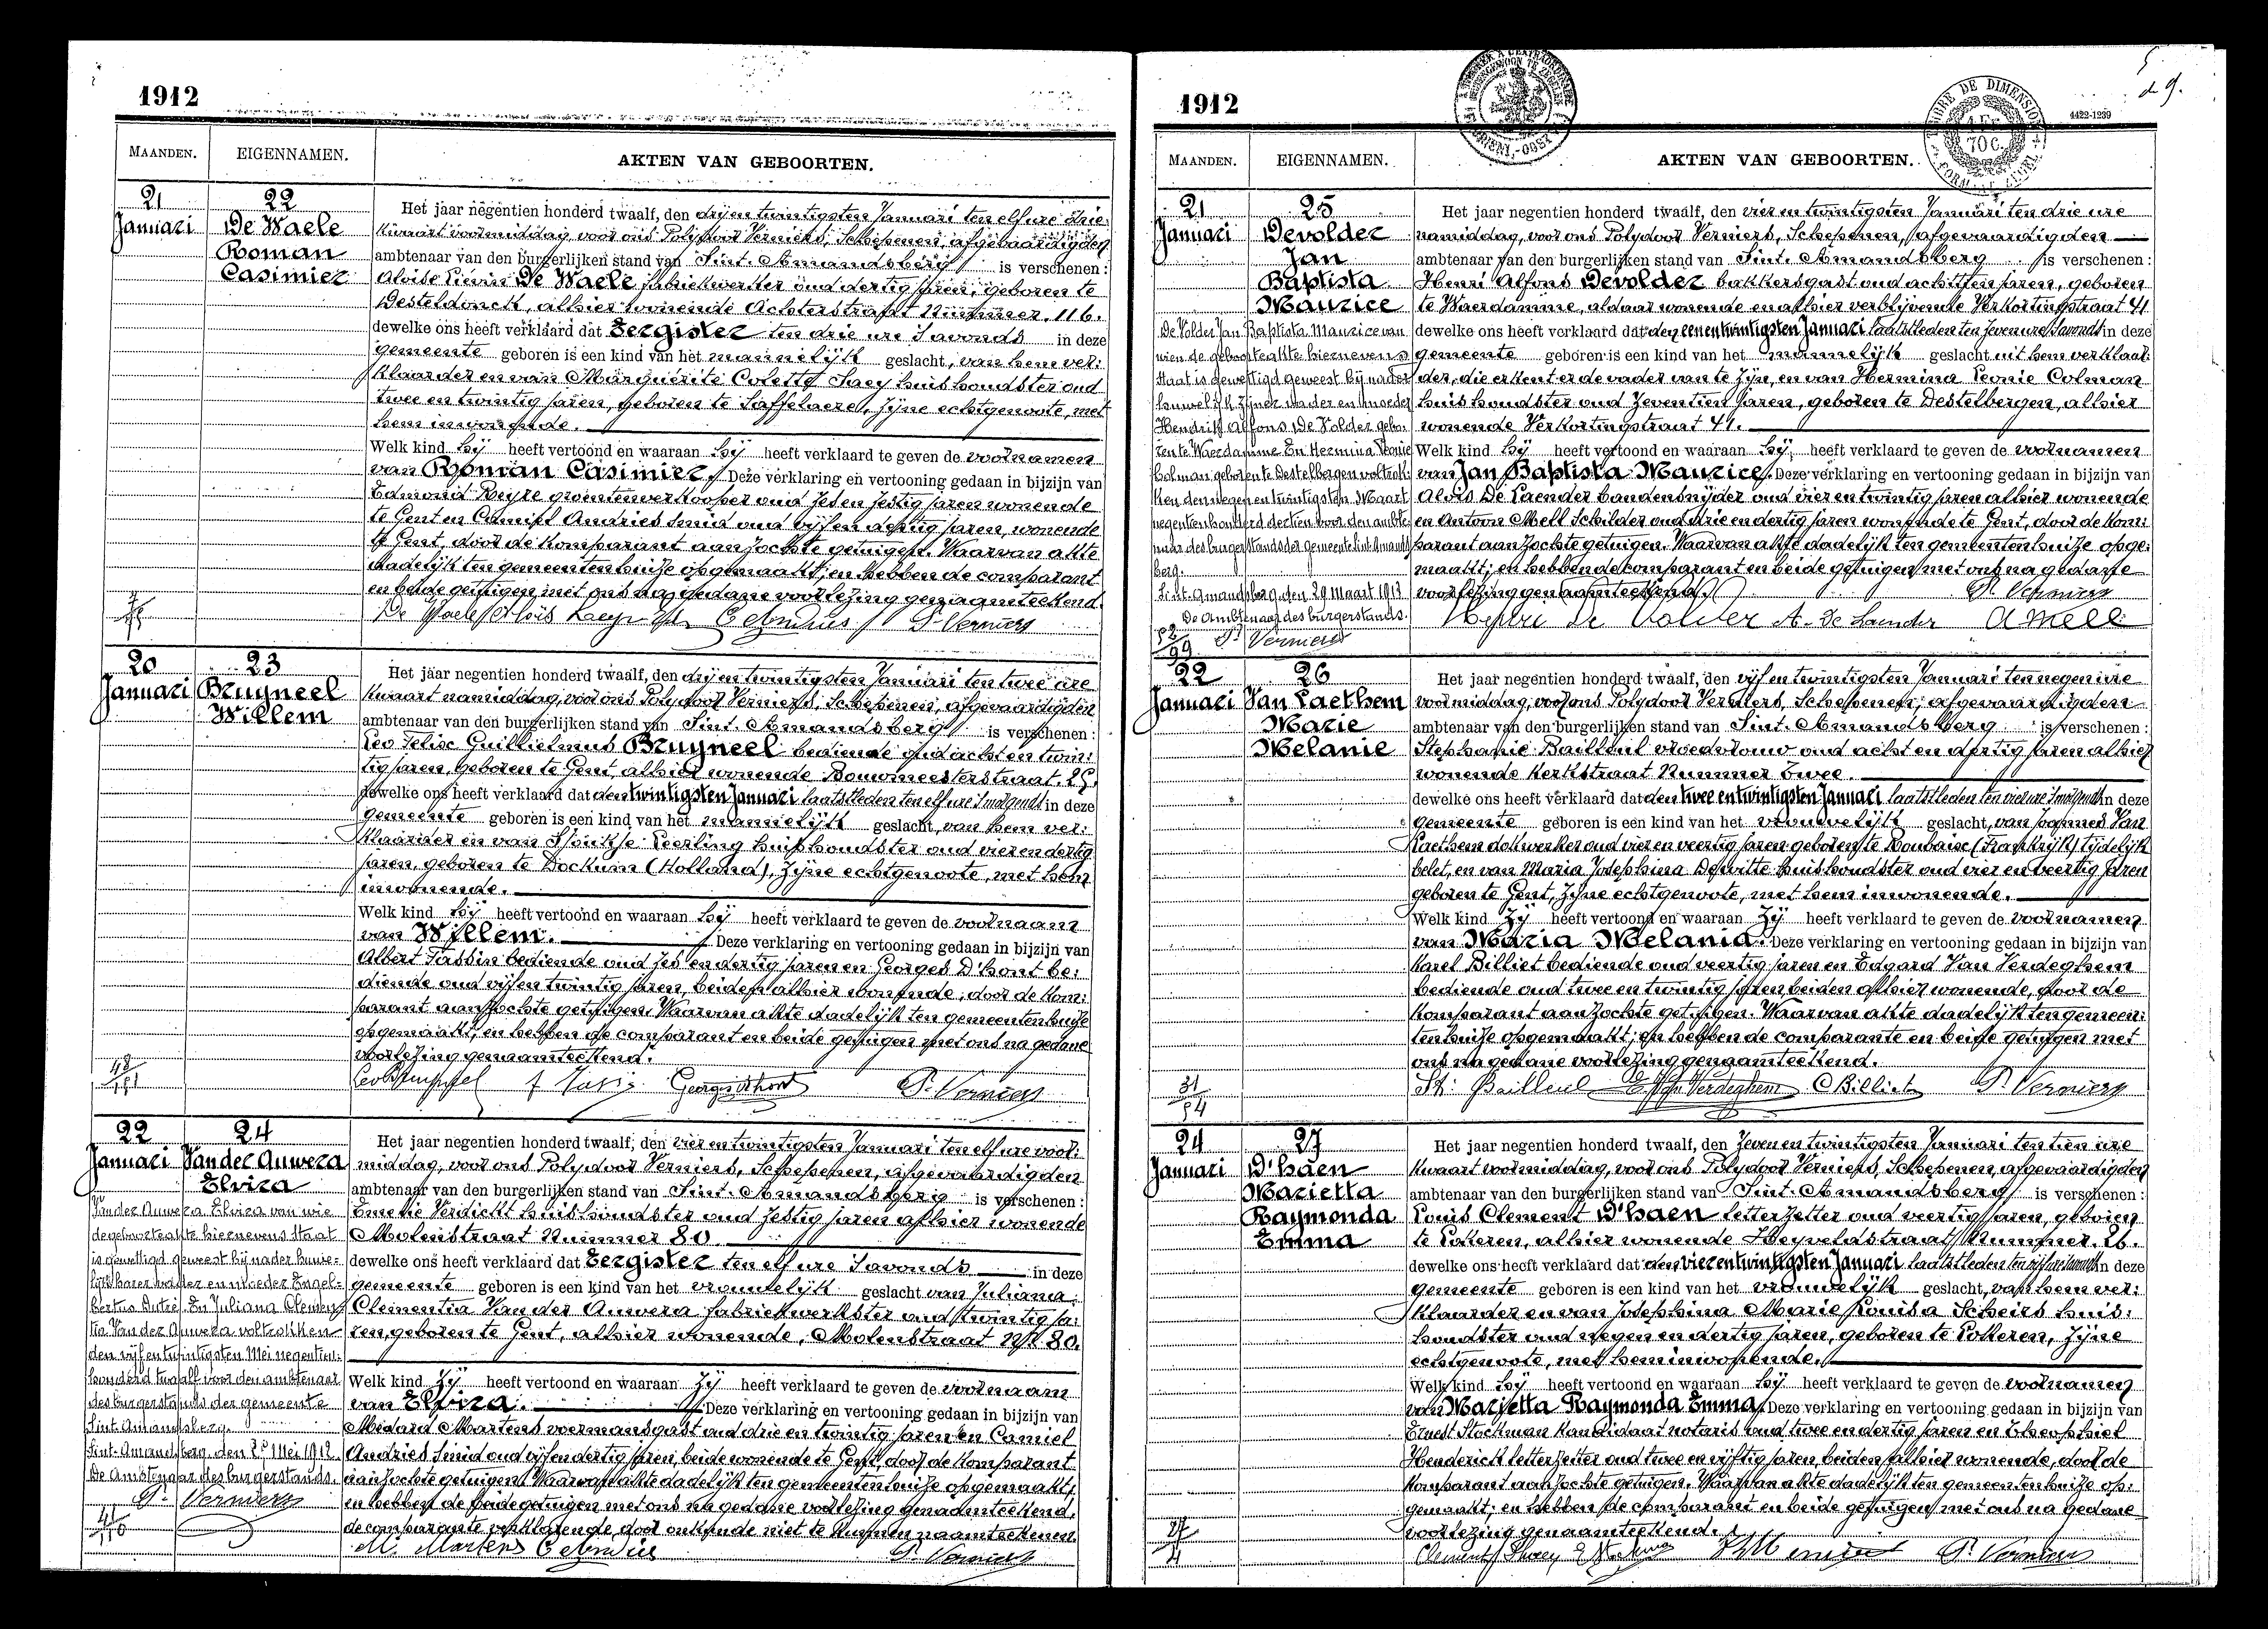 1912
MAANDEN.
EIGENNAMEN.
AKTEN VAN GEBOORTEN.
21
Januari
22
De Waele
Roman
Casimier
Het jaar negentien honderd twaalf, den drij en twintigsten Januari ten elf ure drie
kwaart voormiddag, voor ons Polydoor Verniers, Schepenen, afgevaardigden
ambtenaar van den burgerlijken stand van Sint-Amandsberg is verschenen:
Aloïse Liévin De Waele fabriekwerker oud dertig jaren, geboren te
Desteldonck, alhier wonende Achterstraat Nummer 116.
dewelke ons heeft verklaard dat Eergister ten drie ure 's avonds in deze
gemeente geboren is een kind van het mannelijk geslacht, van hem ver:
klaarder en van Marguérite Coletta Saey huishoudster oud
twee en twintig jaren, geboren te Saffelaere, zijne echtgenoote, met
hem inwonende.
Welk kind hij heeft vertoond en waaraan hij heeft verklaard te geven de voornamen
van Roman Casimier. Deze verklaring en vertooning gedaan in bijzijn van
Edmond groentenverkooper oud zes en sestig jaren wonende
te Gent en Camiel Andries smid oud vijf en dertig jaren, wonende
te Gent, door de komparant aanzochte getuigen. Waarvan akte
dadelijk ten gemeentenhuize opgemaakt; en hebben de comparant
en beide getuigen met ons na gedane voorlezing genaamteekend.
De Waele Aloïs C Andries P. Verniers
20
Januari
23
Bruyneel
Willem
Het jaar negentien honderd twaalf, den drij en twintigsten Januari ten twee ure
kwaart namiddag, voor ons Polydoor Verniers, Schepenen, afgevaardigden
ambtenaar van den burgerlijken stand van Sint-Amandsberg is verschenen:
Leo Felix Guillielmus Bruyneel bediende oud acht en twin:
tig jaren, geboren te Gent, alhier wonende Bouwmeesterstraat. 25.
dewelke ons heeft verklaard dat den twintigsten Januari laatstleden ten elf ure 's morgends in deze
gemeente geboren is een kind van het mannelijk geslacht, van hem ver:
klaarder en van Sjoukje Leerling huishoudster oud vier en dertig
jaren, geboren te Dockum (Holland), zijne echtgenoote, met hem
inwonende.
Welk kind hij heeft vertoond en waaraan hij heeft verklaard te geven de voornaam
van Willem. Deze verklaring en vertooning gedaan in bijzijn van
Albert Tassin bediende oud zes en dertig jaren en Georges D'hont be:
diende oud vijf en twintig jaren, beiden alhier wonende; door de kom:
parant aanzochte getuigen. Waarvan akte dadelijk ten gemeentenhuize
opgemaakt; en hebben de comparant en beide getuigen met ons na gedane
voorlezing genaamteekend.
Georges Dhont P. Verniers
22
Januari
24
Van der Auwera
Elvira
Van der Auwera Elvira van wie
de geboorteakte hiernevens staat
is gewettigd geweest bij nader huwe-
lijk harer vader en moeder Engel-
bertus Dutrie En Juliana Clemen-
tia Van der Auwera voltrokken
den vijf en twintigsten Mei negentien-
honderd twaalf voor den ambtenaar
des burgerstands der gemeente
Sint-Amandsberg.
Sint-Amandsberg, den 25 Mei 1912
De Ambtenaar des burgerstands.
P. Verniers
Het jaar negentien honderd twaalf, den vier en twintigsten Januari ten elf ure voor:
middag, voor ons Polydoor Verniers, Schepenen, afgevaardigden
ambtenaar van den burgerlijken stand van Sint-Amandsberg is verschenen:
Emelie Verdickt huishoudster oud zestig jaren alhier wonende
Molenstraat Nummer 80.
dewelke ons heeft verklaard dat Eergister ten elf ure 's avonds in deze
gemeente geboren is een kind van het vrouwelijk geslacht van Juliana
Clementia Van der Auwera fabriekwerkster oud twintig ja:
ren, geboren te Gent, alhier wonende, Molenstraat Nr 80.
Welk kind zij heeft vertoond en waaraan zij heeft verklaard te geven de voornaam
van Elvira. Deze verklaring en vertooning gedaan in bijzijn van
Medard Martens voermansgast oud drie en twintig jaren en Camiel
Andries smid oud vijf en dertig jaren, beide wonende te Gent, door de komparant
aanzochte getuigen. Waarvan akte dadelijk ten gemeentenhuize opgemaakt,
en hebben de beide getuigen met ons na gedane voorlezing genaamteekend,
de comparante verklarende, door onkunde niet te kunnen naamteekenen.
M. Martens C Andries P. Verniers
1912
4422-1239
TIMBRE DE DIMENSION
70 C.
MAANDEN.
EIGENNAMEN.
AKTEN VAN GEBOORTEN.
21
Januari
25
Devolder
Jan
Baptista
Maurice
De Volder Jan Baptista Maurice van
wien de geboorteakte hiernevens
staat is gewettigd geweest bij nader
huwelijk zijner vader en moeder
Hendrik Alfons De Volder gebo-
ren te Waerdamme En Hermina Leonie
Colman geboren te Destelbergen voltrok-
ken den negen en twintigsten Maart
negentienhonderd dertien voor den ambte-
naar des burgerstands der gemeente Sint Amands-
berg.
Sint-Amandsberg, den 29 Maart 1913
De Ambtenaar des burgerstands.
P. Verniers
Het jaar negentien honderd twaalf, den vier en twintigsten Januari ten drie ure
namiddag, voor ons Polydoor Verniers, Schepenen, afgevaardigden
ambtenaar van den burgerlijken stand van Sint-Amandsberg is verschenen:
Henri Alfons Devolder bakkersgast oud achttien jaren, geboren
te Waerdamme, aldaar wonende en alhier verblijvende Verkortingstraat 41
dewelke ons heeft verklaard dat den een en twintigsten Januari laatstleden ten zeven ure 's avonds in deze
gemeente geboren is een kind van het mannelijk geslacht uit hem verklaar:
der, die erkent er de vader van te zijn, en van Hermina Leonie Colman
huishoudster oud zeventien jaren, geboren te Destelbergen, alhier
wonende Verkortingstraat 41.
Welk kind hij heeft vertoond en waaraan hij heeft verklaard te geven de voornamen
van Jan Baptista Maurice. Deze verklaring en vertooning gedaan in bijzijn van
Aloïs De Laender bandensnijder oud vier en twintig jaren alhier wonende
en Antoon Mell Schilder oud drie en dertig jaren wonende te Gent, door de kom:
parant aanzochte getuigen. Waarvan akte dadelijk ten gemeentenhuize opge:
maakt; en hebben de komparant en beide getuigen met ons na gedane
voorlezing genaamteekend. P. Verniers
Henri De Volder A. De Laender A Mell
22
Januari
26
Van Laethem
Marie
Melanie
Het jaar negentien honderd twaalf, den vijf en twintigsten Januari ten negen ure
voormiddag, voor ons Polydoor Verniers, Schepenen, afgevaardigden
ambtenaar van den burgerlijken stand van Sint-Amandsberg is verschenen:
Stephanie Bailleul vroedvrouw oud acht en dertig jaren alhier
wonende Kerkstraat Nummer Twee.
dewelke ons heeft verklaard dat den twee en twintigsten Januari laatstleden ten vier ure 's morgends in deze
gemeente geboren is een kind van het vrouwelijk geslacht, van Joannes Van
Laethem dokwerker oud vier en veertig jaren geboren te Roubaix (Frankrijk) tijdelijk
belet, en van Maria Josephina Dewitte huishoudster oud vier en veertig jaren
geboren te Gent, zijne echtgenoote, met hem inwonende.
Welk kind zij heeft vertoond en waaraan zij heeft verklaard te geven de voornamen
van Maria Melania. Deze verklaring en vertooning gedaan in bijzijn van
Karel Billiet bediende oud veertig jaren en Edgard Van Verdeghem
bediende oud twee en twintig jaren, beiden alhier wonende, door de
komparant aanzochte getuigen. Waarvan akte dadelijk ten gemeen:
tenhuize opgemaakt; en hebben de comparante en beide getuigen met
ons na gedane voorlezing genaamteekend.
St. Bailleul E Van Verdeghem C Billiet P. Verniers
24
Januari
27
D'haen
Marietta
Raymonda
Emma
Het jaar negentien honderd twaalf, den zeven en twintigsten Januari ten tien ure
kwaart voormiddag, voor ons Polydoor Verniers, Schepenen, afgevaardigden
ambtenaar van den burgerlijken stand van Sint-Amandsberg is verschenen:
Louis Clement D'haen letterzetter oud veertig jaren, geboren
te Lokeren, alhier wonende Heyveldstraat Nummer. 26.
dewelke ons heeft verklaard dat den vier en twintigsten Januari laatstleden ten vijf ure 's avonds in deze
gemeente geboren is een kind van het vrouwelijk geslacht, van hem ver:
klaarder en van Josephina Marie Louisa Scheirs huis:
houdster oud negen en dertig jaren, geboren te Lokeren, zijne
echtgenoote, met hem inwonende.
Welk kind hij heeft vertoond en waaraan hij heeft verklaard te geven de voornamen
van Marietta Raymonda Emma. Deze verklaring en vertooning gedaan in bijzijn van
Ernest Stockman kandidaat notaris oud twee en dertig jaren en Theophiel
Henderick letterzetter oud twee en vijftig jaren, beiden alhier wonende, door de
komparant aanzochte getuigen. Waarvan akte dadelijk ten gemeentenhuize op:
gemaakt; en hebben de comparant en beide getuigen met ons na gedane
voorlezing genaamteekend.
P. Verniers